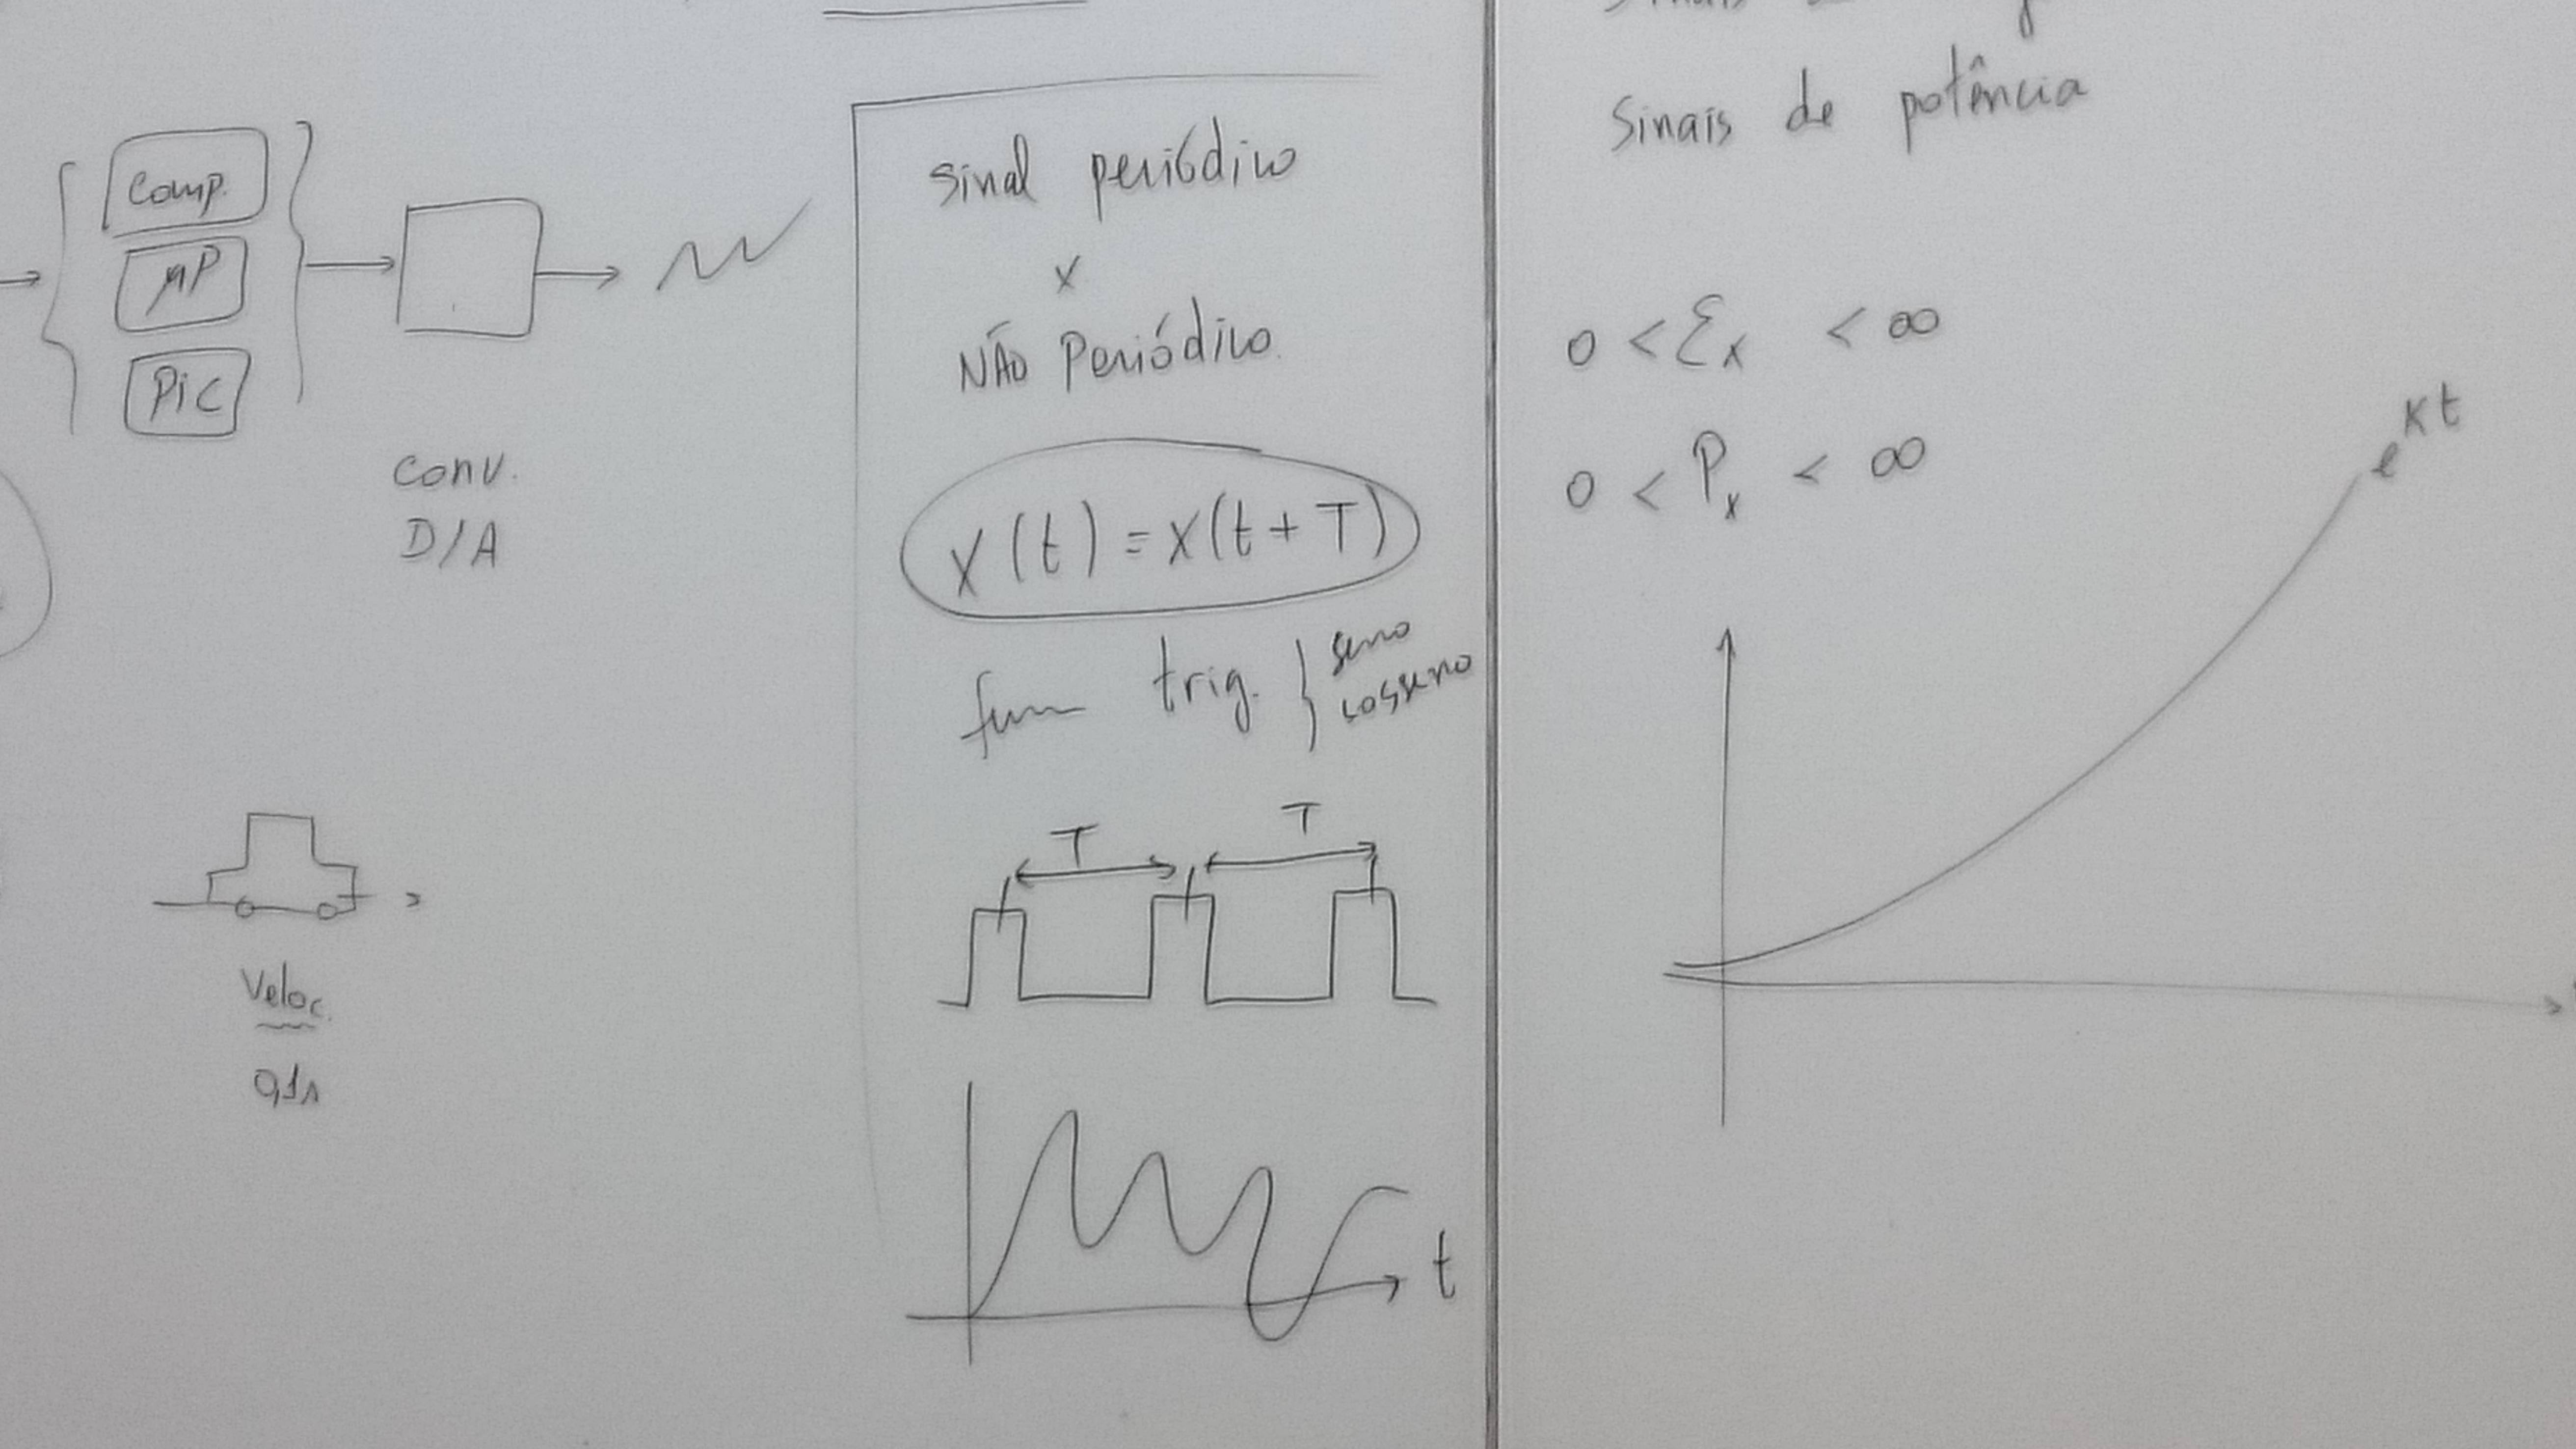 Comp.
μP
Pic
Conv.
D/A
Veloc.
0,1s
Sinal periódico
x
NÃO Periódico
x(t) = x(t + T)
trig. } seno
cosseno
T
T
t
Sinais
Sinais de potência
0 < Ex < ∞
0 < Px < ∞
e^Kt